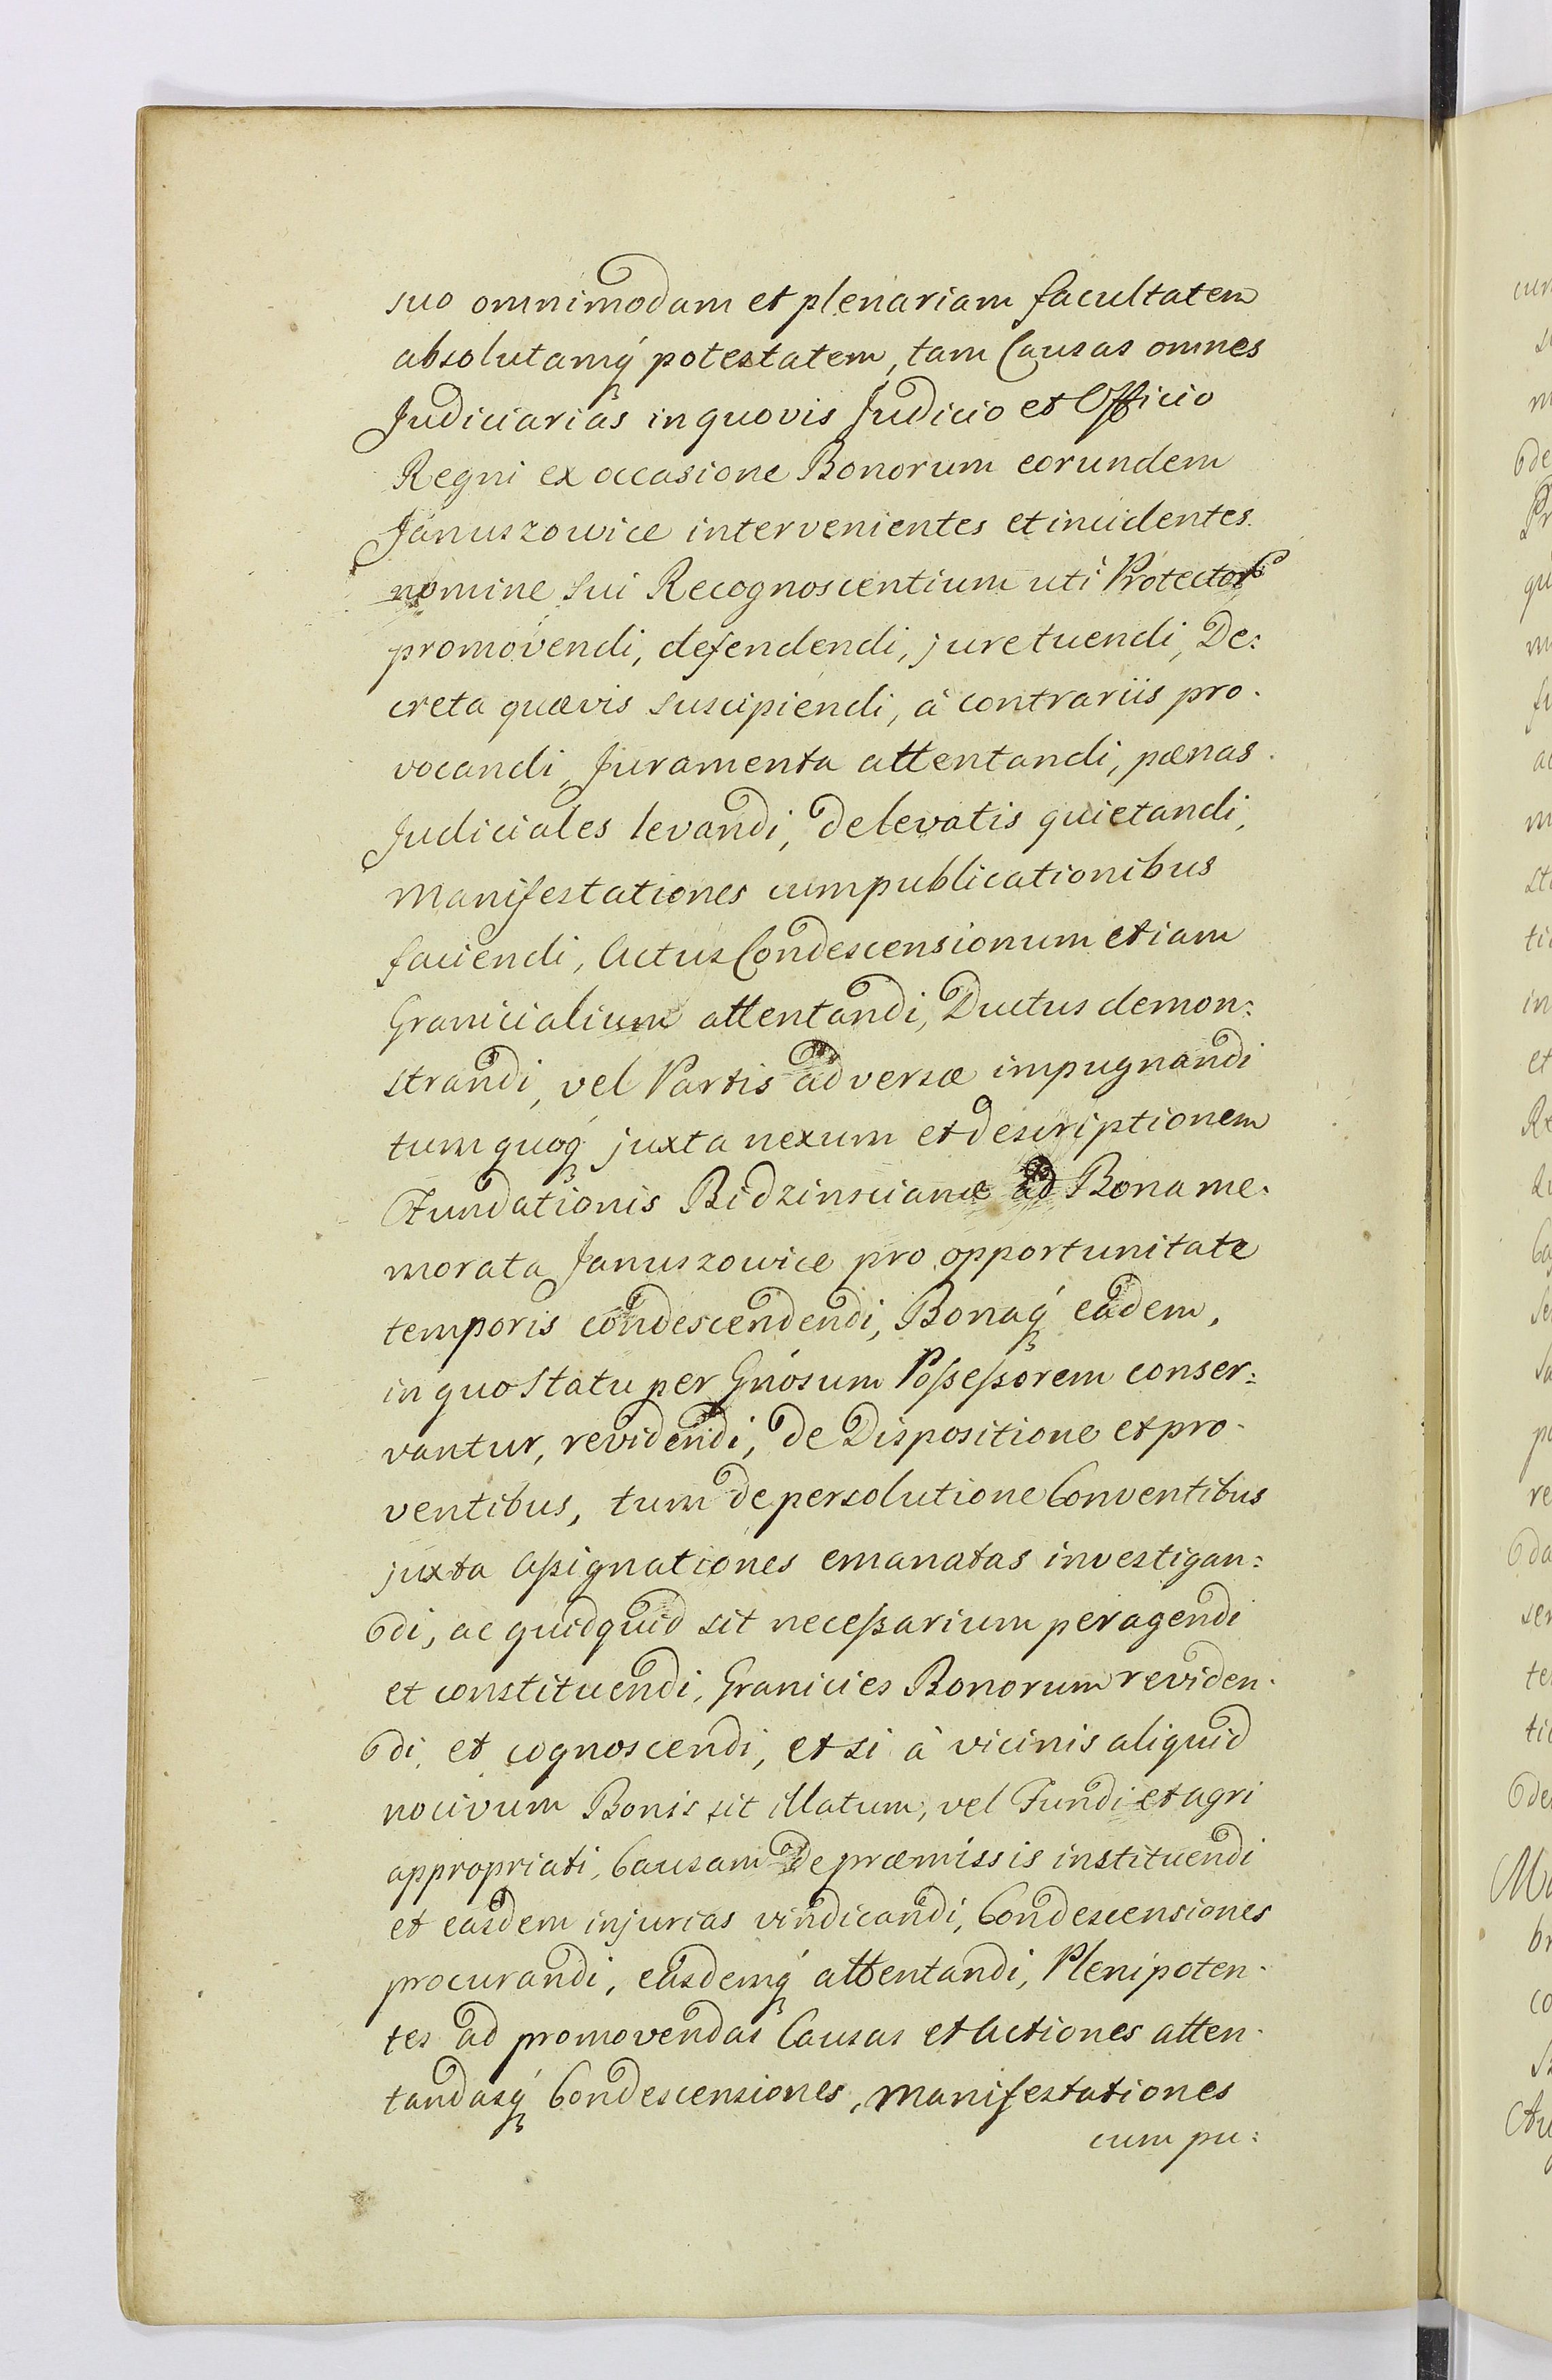 suo omnimodam et plenariam facultatem
absolutamq́ potestatem, tam Causas omnes
Judiciarias in quovis Judicio et Officio
Regni ex occasione Bonorum eorundem
Januszowice intervenientes et incidentes
nomine sui Recognoscentium uti Protector
promovendi, defendendi, jure tuendi, De:
creta quævis suscipiendi, à contrariis pro-
vocandi, Juramenta attentandi, pænas
Judiciales levandi, de levatis quietandi,
Manifestationes cum publicationibus
faciendi, Actus Condescensionum etiam
Granicialium attentandi, Ductus demon:
strandi, vel Partis adversæ impugnandi
tum quoq́ juxta nexum et descriptionem
Fundationis Bidzinscianæ ad Bona me-
morata Januszowice pro opportunitate
temporis condescendendi, Bonaq́ eadem,
in quo statu per Gnosum Poßeßorem conser:
vantur, revidendi, de Dispositione et pro-
ventibus, tum de persolutione Conventibus
juxta Aßignationes emanatas investigan:
di, ac quidquid sit neceßarium peragendi
et constituendi, Granicies Bonorum reviden-
di, et cognoscendi, et si à vicinis aliquid
nocivum Bonis sit illatum, vel Fundi et agri
appropriati, Causam de præmissis instituendi
et easdem injurias vindicandi, Condescensiones
procurandi, easdemq́ attentandi, Plenipoten-
tes ad promovendas Causas et Actiones atten-
tandasq́ Condescensiones, Manifestationes
cum pu: